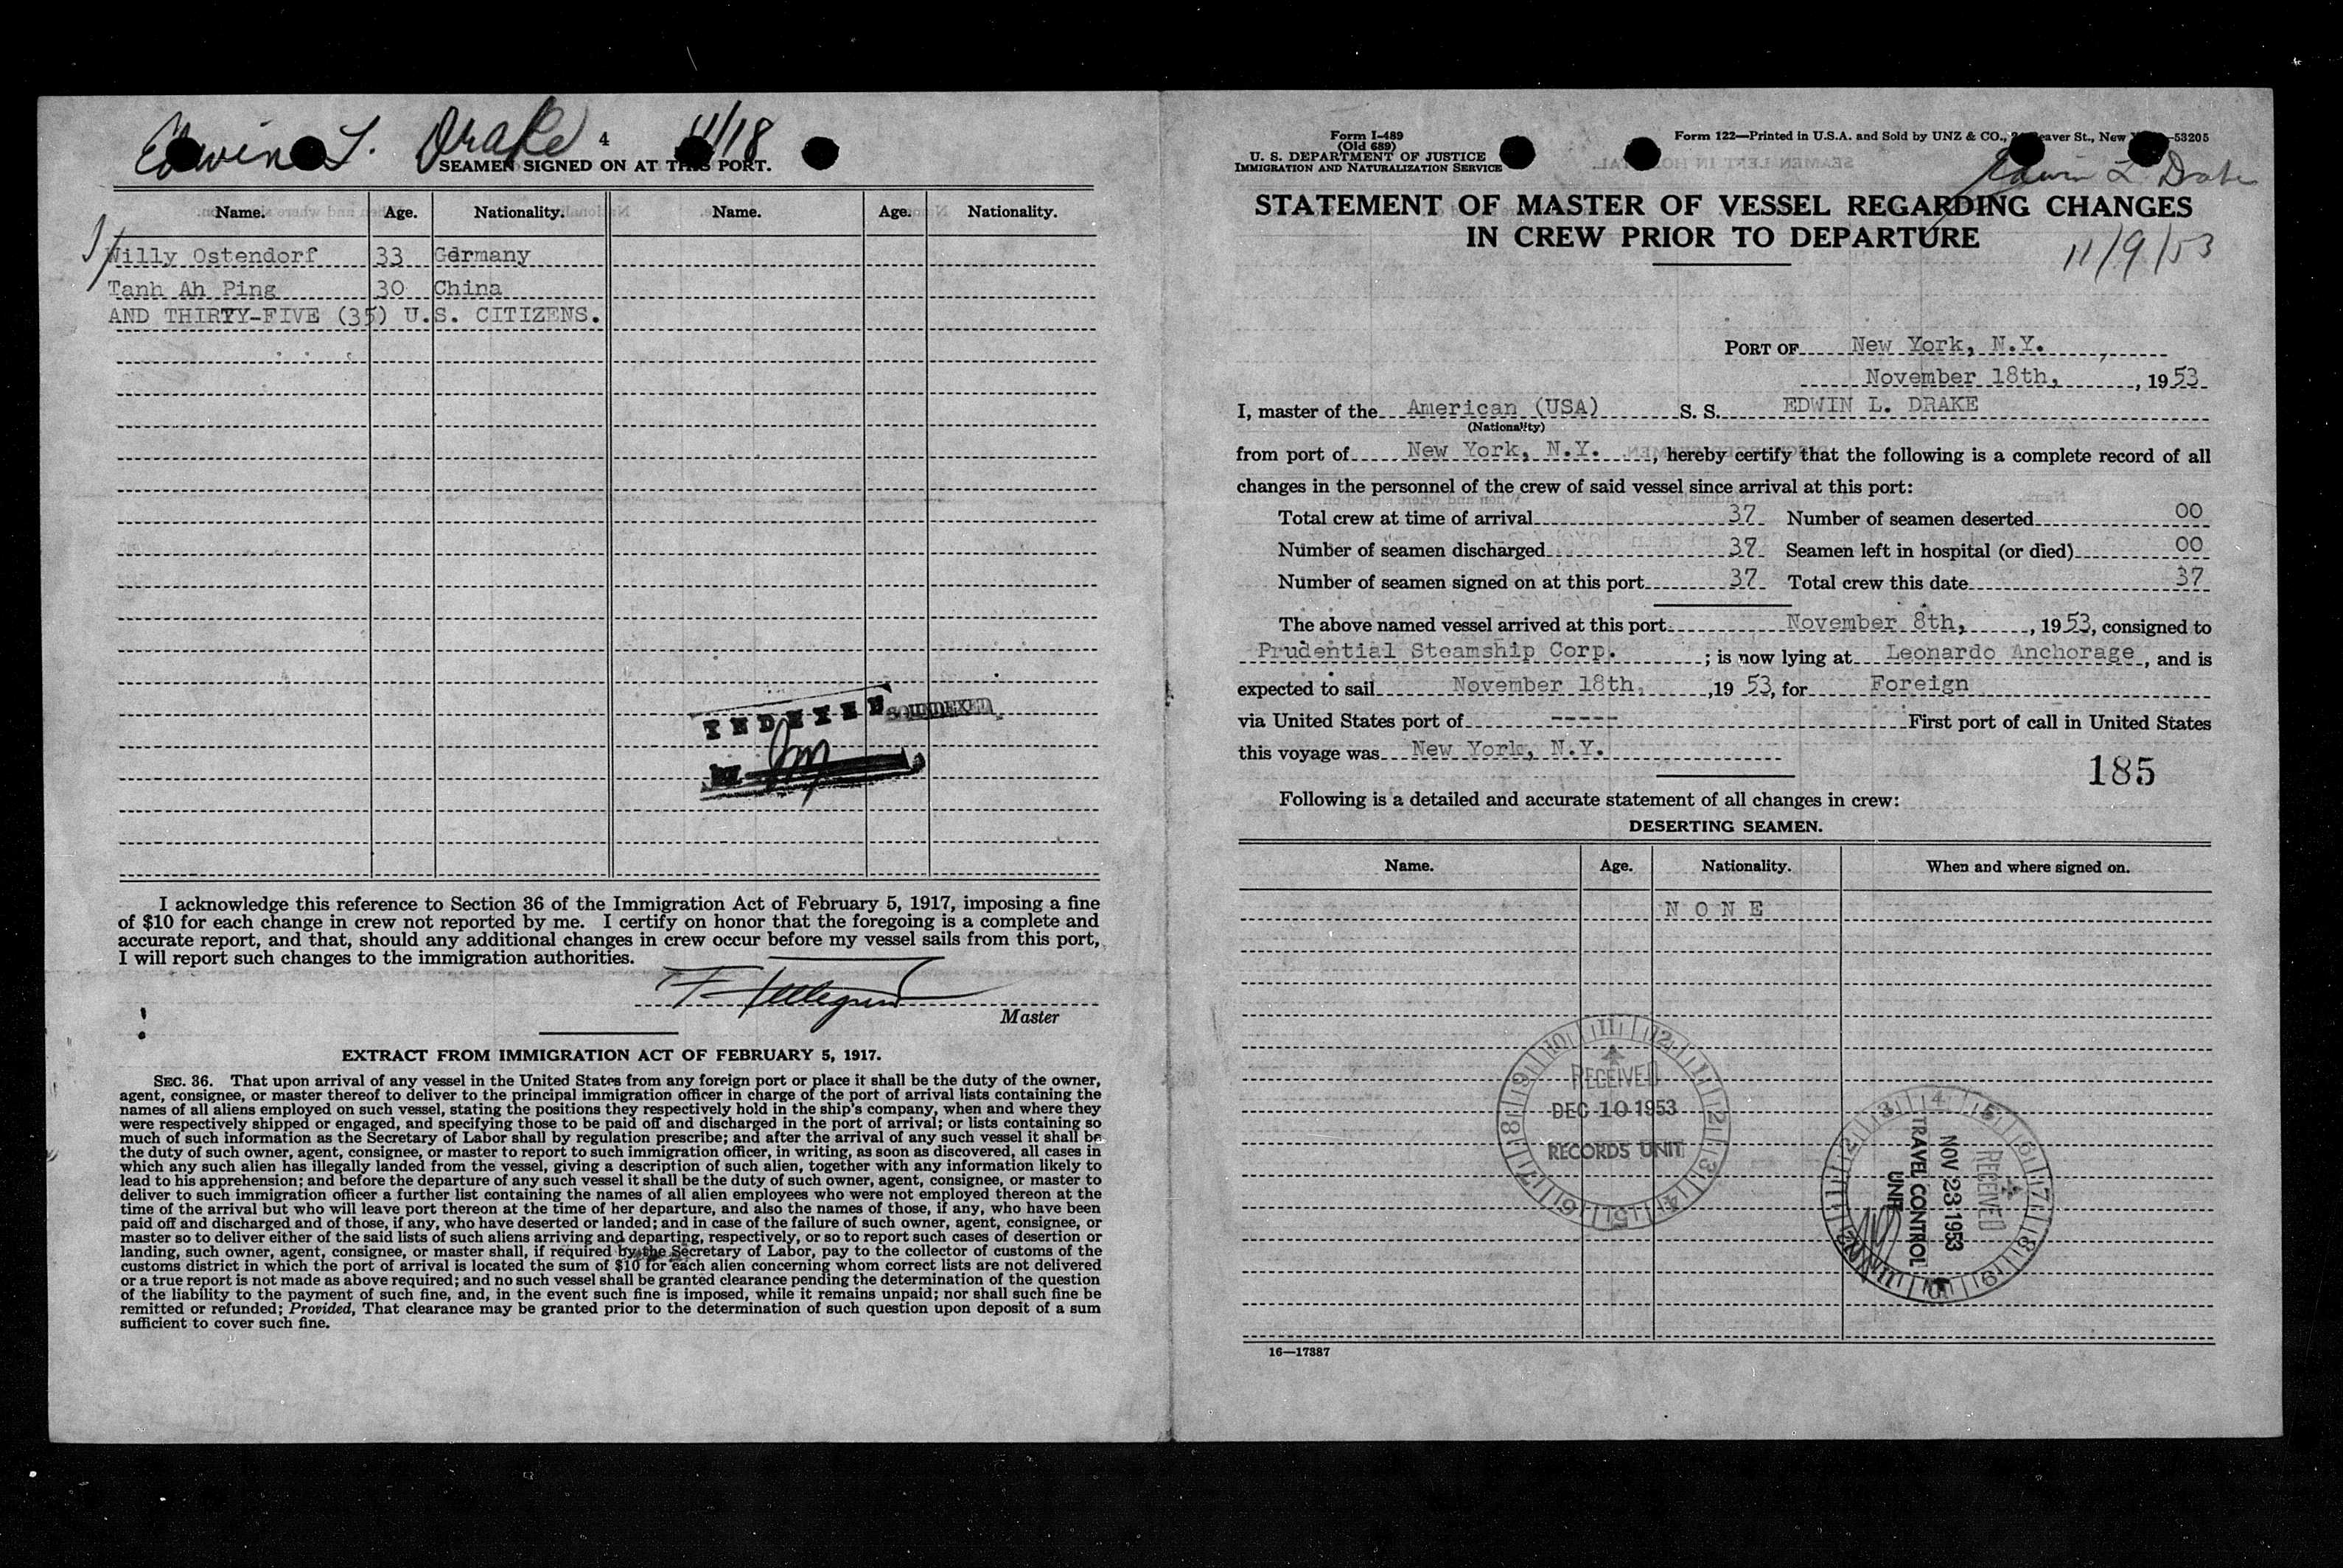 Edwin L. Drake 11/18
4
SEAMEN SIGNED ON AT THIS PORT.
Name. Age. Nationality. Name. Age. Nationality.
Willy Ostendorf 33 Germany
Tanh Ah Ping 30 China
AND THIRTY-FIVE (35) U.S. CITIZENS.
INDEXED SOUNDEXED
by
I acknowledge this reference to Section 36 of the Immigration Act of February 5, 1917, imposing a fine
of $10 for each change in crew not reported by me. I certify on honor that the foregoing is a complete and
accurate report, and that, should any additional changes in crew occur before my vessel sails from this port,
I will report such changes to the immigration authorities.
Master
EXTRACT FROM IMMIGRATION ACT OF FEBRUARY 5, 1917.
SEC. 36. That upon arrival of any vessel in the United States from any foreign port or place it shall be the duty of the owner,
agent, consignee, or master thereof to deliver to the principal immigration officer in charge of the port of arrival lists containing the
names of all aliens employed on such vessel, stating the positions they respectively hold in the ship's company, when and where they
were respectively shipped or engaged, and specifying those to be paid off and discharged in the port of arrival; or lists containing so
much of such information as the Secretary of Labor shall by regulation prescribe; and after the arrival of any such vessel it shall be
the duty of such owner, agent, consignee, or master to report to such immigration officer, in writing, as soon as discovered, all cases in
which any such alien has illegally landed from the vessel, giving a description of such alien, together with any information likely to
lead to his apprehension; and before the departure of any such vessel it shall be the duty of such owner, agent, consignee, or master to
deliver to such immigration officer a further list containing the names of all alien employees who were not employed thereon at the
time of the arrival but who will leave port thereon at the time of her departure, and also the names of those, if any, who have been
paid off and discharged and of those, if any, who have deserted or landed; and in case of the failure of such owner, agent, consignee, or
master so to deliver either of the said lists of such aliens arriving and departing, respectively, or so to report such cases of desertion or
landing, such owner, agent, consignee, or master shall, if required by the Secretary of Labor, pay to the collector of customs of the
customs district in which the port of arrival is located the sum of $10 for each alien concerning whom correct lists are not delivered
or a true report is not made as above required; and no such vessel shall be granted clearance pending the determination of the question
of the liability to the payment of such fine, and, in the event such fine is imposed, while it remains unpaid; nor shall such fine be
remitted or refunded; Provided, That clearance may be granted prior to the determination of such question upon deposit of a sum
sufficient to cover such fine.
Form I-489
(Old 689)
U. S. DEPARTMENT OF JUSTICE
IMMIGRATION AND NATURALIZATION SERVICE
Form 122—Printed in U.S.A. and Sold by UNZ & CO., Beaver St., New 53205
Edwin L Drake
STATEMENT OF MASTER OF VESSEL REGARDING CHANGES
IN CREW PRIOR TO DEPARTURE
11/9/53
PORT OF New York, N.Y.
November 18th, , 1953
I, master of the American (USA) S. S. EDWIN L. DRAKE
(Nationality)
from port of New York, N.Y. , hereby certify that the following is a complete record of all
changes in the personnel of the crew of said vessel since arrival at this port:
Total crew at time of arrival 37 Number of seamen deserted 00
Number of seamen discharged 37 Seamen left in hospital (or died) 00
Number of seamen signed on at this port 37 Total crew this date 37
The above named vessel arrived at this port November 8th, , 1953, consigned to
Prudential Steamship Corp. ; is now lying at Leonardo Anchorage , and is
expected to sail November 18th, ,19 53, for Foreign
via United States port of ----- First port of call in United States
this voyage was New York, N.Y.
185
Following is a detailed and accurate statement of all changes in crew:
DESERTING SEAMEN.
Name. Age. Nationality. When and where signed on.
N O N E
RECEIVED
DEC 10 1953
RECORDS UNIT
RECEIVED
NOV 23 1953
TRAVEL CONTROL
UNIT
16—17387